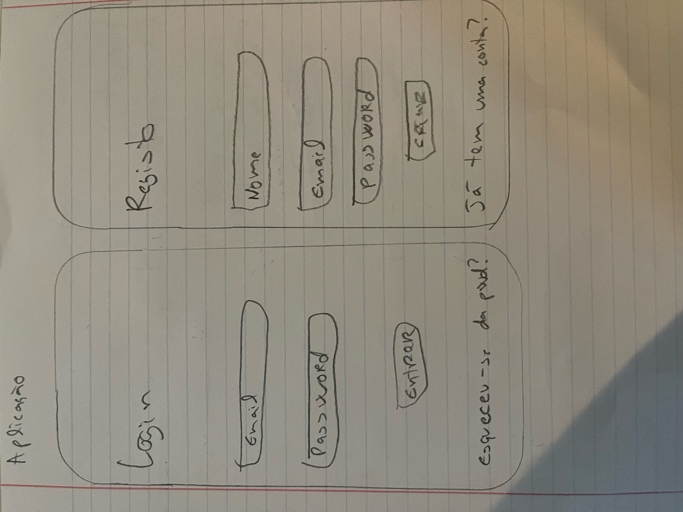 Aplicação
Login
Email
Password
Entrar
Esqueceu-se da pwd?
Registo
Nome
Email
Password
Criar
Já tem uma conta?